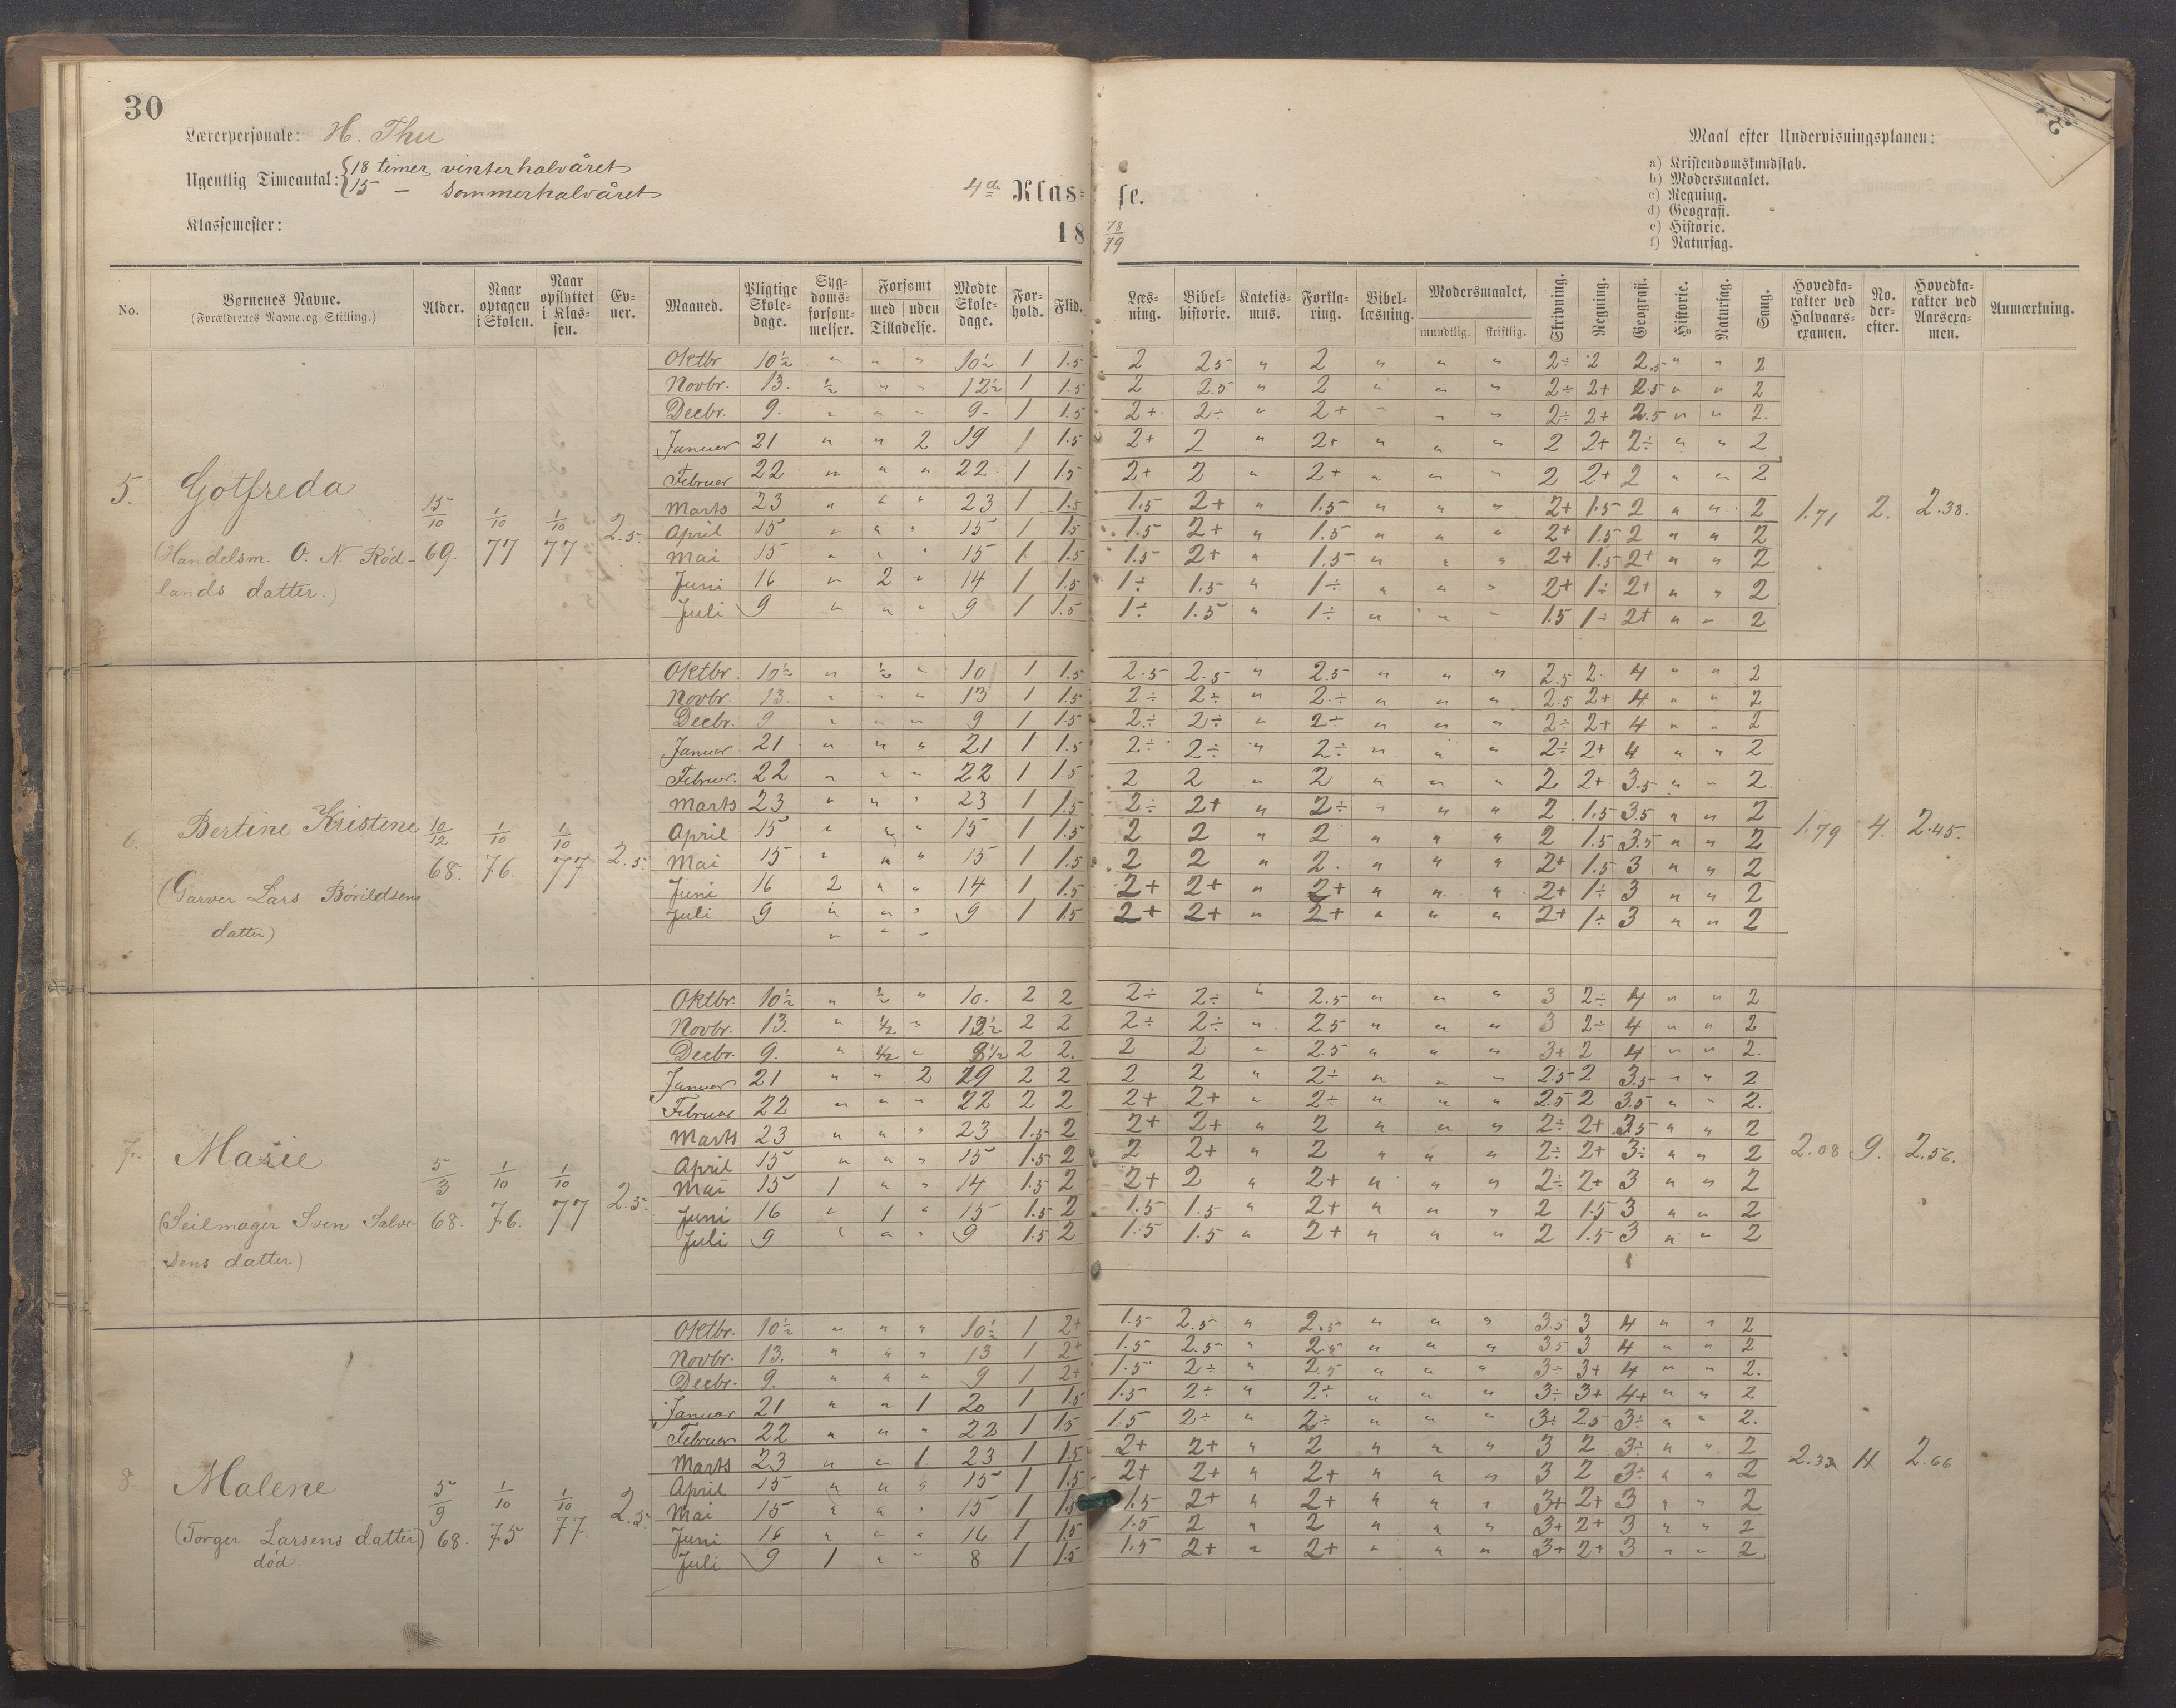 30
Lærerpersonale: H. Thu
Ugentlig Timeantal: {18 timer vinterhalvåret
15 — sommerhalvåret
Klassemester:
4de Klas= se.
18 78/79
Maal efter Undervisningsplanen:
a) Kristendomskundskab.
b) Modersmaalet.
c) Regning.
d) Geografi.
e) Historie.
f) Naturfag.
No. | Børnenes Navne. (Forældrenes Navne og Stilling.) | Alder. | Naar optagen i Skolen. | Naar opflyttet i Klassen. | Evner. | Maaned. | Pligtige Skoledage. | Sygdomsforsømmelser. | Forsømt med / uden Tilladelse. | Mødte Skoledage. | Forhold. | Flid. | Læsning. | Bibelhistorie. | Katekismus. | Forklaring. | Bibellæsning. | Modersmaalet, mundtlig. | skriftlig. | Skrivning. | Regning. | Geografi. | Historie. | Naturfag. | Sang. | Hovedkarakter ved Halvaarsexamen. | No. derefter. | Hovedkarakter ved Aarsexamen. | Anmærkning.
5. Gotfreda 15/10 69. 1/10 77 1/10 77 2.5 1.71 2. 2.38.
(Handelsm. O. N Rød-
lands datter.)
Oktbr 10½ " " " 10½ 1 1.5 2 2.5 " 2 " " " 2÷ 2 2.5 " " 2
Novbr. 13. ½ " " 12½ 1 1.5 2 2.5 " 2 " " " 2÷ 2+ 2.5 " " 2
Decbr. 9. " " " 9. 1 1.5 2+ 2÷ " 2+ " " " 2÷ 2+ 2.5 " " 2.
Januar 21 " " 2 19 1 1.5 2+ 2 " 2+ " " " 2 2+ 2÷ " " 2
Februar 22 " " " 22 1 1.5 2+ 2 " 2+ " " " 2 2+ 2 " " 2
Marts 23 " " " 23 1 1.5 1.5 2+ " 1.5 " " " 2+ 1.5 2 " " 2
April 15 " " " 15 1 1.5 1.5 2+ " 1.5 " " " 2+ 1.5 2 " " 2
Mai 15 " " " 15 1 1.5 1.5 2+ " 1.5 " " " 2+ 1.5 2+ " " 2
Juni 16 " 2 " 14 1 1.5 1÷ 1.5 " 1÷ " " " 2+ 1÷ 2+ " " 2
Juli 9 " " " 9 1 1.5 1÷ 1.5 " 1÷ " " " 1.5 1÷ 2+ " " 2
6. Bertine Kristine 10/12 68. 1/10 76. 1/10 77 2.5 1.79 4. 2.45.
(Garver Lars Børildsens
datter)
Oktbr. 10½ " ½ " 10 1 1.5 2.5 2.5 " 2.5 " " " 2.5 2 4 " " 2
Novbr. 13. " " " 13 1 1.5 2÷ 2÷ " 2÷ " " " 2.5 2+ 4 " " 2
Decbr. 9 " " " 9 1 1.5 2÷ 2÷ " 2÷ " " " 2÷ 2+ 4 " " 2
Januar 21 " " " 21 1 1.5 2÷ 2÷ " 2÷ " " " 2÷ 2+ 4 " " 2
Februar. 22 " " " 22 1 1.5 2 2 " 2 " " " 2 2+ 3.5 " " 2
Marts 23 " " " 23 1 1.5 2÷ 2+ " 2÷ " " " 2 1.5 3.5 " " 2
April 15 " " " 15 1 1.5 2 2 " 2 " " " 2 1.5 3.5 " " 2
Mai 15 " " " 15 1 1.5 2 2 " 2. " " " 2+ 1.5 3 " " 2
Juni 16 2 " " 14 1 1.5 2+ 2+ " 2+ " " " 2+ 1÷ 3 " " 2
Juli 9 " " " 9 1 1.5 2+ 2+ " 2+ " " " 2+ 1÷ 3 " " 2
" " "
7. Marie 5/3 68. 1/10 76. 1/10 77 2.5. 2.08 9. 2.56.
(Seilmager Sven Salve-
sens datter)
Oktbr. 10½ " ½ " 10. 2 2 2÷ 2÷ " 2.5 " " " 3 2÷ 4 " " 2
Novbr. 13. " ½ " 12½ 2 2 2÷ 2÷ " 2.5 " " " 3 2÷ 4 " " 2
Decbr. 9. " ½ " 8½ 2 2. 2 2 " 2.5 " " " 3+ 2 4 " " 2.
Januar 21 " " 2 19 2 2 2 2 " 2÷ " " " 2.5 2 3.5 " " 2
Februar 22 " " " 22 2 2 2+ 2+ " 2÷ " " " 2.5 2 3.5 " " 2.
Marts 23 " " " 23 1.5 2 2+ 2+ " 2 " " " 2÷ 2+ 3.5 " " 2
April 15 " " " 15 1.5 2 2 2+ " 2 " " " 2÷ 2+ 3÷ " " 2
Mai 15 1 " " 14 1.5 2 2+ 2 " 2+ " " " 2÷ 2+ 3 " " 2
Juni 16 " 1 " 15 1.5 2 1.5 1.5 " 2+ " " " 2 1.5 3 " " 2
Juli 9 " " " 9 1.5 2 1.5 1.5 " 2+ " " " 2 1.5 3 " " 2
8. Malene 5/9 68. 1/10 75 1/10 77. 2.5. 11 2.66
(Torger Larsens datter)
død.
Oktbr. 10½ " " " 10½ 1 2+ 1.5 2.5 " 2.5 " " " 3.5 3 4 " " 2
Novbr. 13. " " " 13 1 2+ 1.5 2.5 " 2.5 " " " 3.5 3 4 " " 2
Decbr. 9. " " " 9 1 2+ 1.5 2÷ " 2.5 " " " 3÷ 3+ 4 " " 2.
Januar 21 " " 1 20 1 1.5 1.5 2÷ " 2÷ " " " 3÷ 3+ 4+ " " 2
Februar 22 " " " 22 1 1.5 1.5 2÷ " 2÷ " " " 3÷ 2.5 3÷ " " 2.
Marts 23 " " 1 23 1 1.5 2+ 2+ " 2 " " " 3 2 3÷ " " 2
April 15 " " " 15 1 1.5 2+ 2+ " 2+ " " " 3 2 3÷ " " 2
Mai 15 " " " 15 1 1.5 1.5 2+ " 2+ " " " 3+ 2+ 3 " " 2
Juni 16 " " " 16 1 1.5 1.5 2 " 2 " " " 3+ 2+ 3 " " 2
Juli 9 1 " " 8 1 1.5 1.5 2+ " 2+ " " " 3+ 2+ 3 " " 2